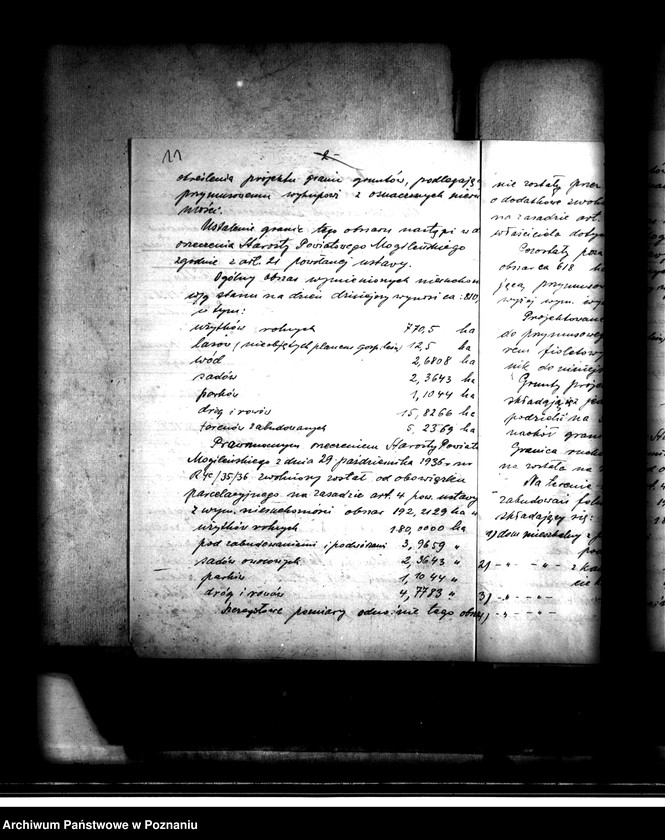 11
2
określenia projektu granic gruntów, podlegając
przymusowemu wykupowi z oznaczonych nieru
mości.
Ustalenie granic tego obszaru nastąpi w d
orzeczenia Starosty Powiatowego Mogileńskiego
zgodnie z art. 21 powołanej ustawy.
Ogólny obszar wymienionych nieruchom
w/g stanu na dzień dzisiejszy wynosi ca: 810,
w tym:
użytków rolnych 770,5 ha
lasów (nieobjętych planem gosp. leśn) 12,5 ha
wód 2,6808 ha
sadów 2,3643 ha
parków 1,1044 ha
dróg i rowów 15,8266 ha
terenów zabudowanych 5,2369 ha
Prawomocnym orzeczeniem Starosty Powiato
Mogileńskiego z dnia 29 października 1936 r. nr
R4c/35/36 zwolniony został od obowiązku
parcelacyjnego na zasadzie art. 4 pow. ustawy
z wym. nieruchomości obszar 192,2129 ha w
użytków rolnych 180,0000 ha
pod zabudowaniami i podwórzami 3,9659 "
sadów owocowych 2,3643 "
parków 1,1044 "
dróg i rowów 4,7783 "
Szczegółowe pomiary odnośnie tego obsz
nie zostały przez
o dodatkowe zwoln
na zasadzie art.
właściciela dotyc
Pozostały
obszar ca 618 ha
jącą przymusow
wyżej wym.
Projektowane
do przymusoweg
rem fioletowy
nik do niniejs
Grunty proje
składają się
podzielić na
naokół gran
Granica
na została na
Na terenie
zabudowań fol
składający się:
1) dom mieszkalny z
po
2) - " - " - z ka
3) - " - " -
4) - " - " -
Archiwum Państwowe w Poznaniu